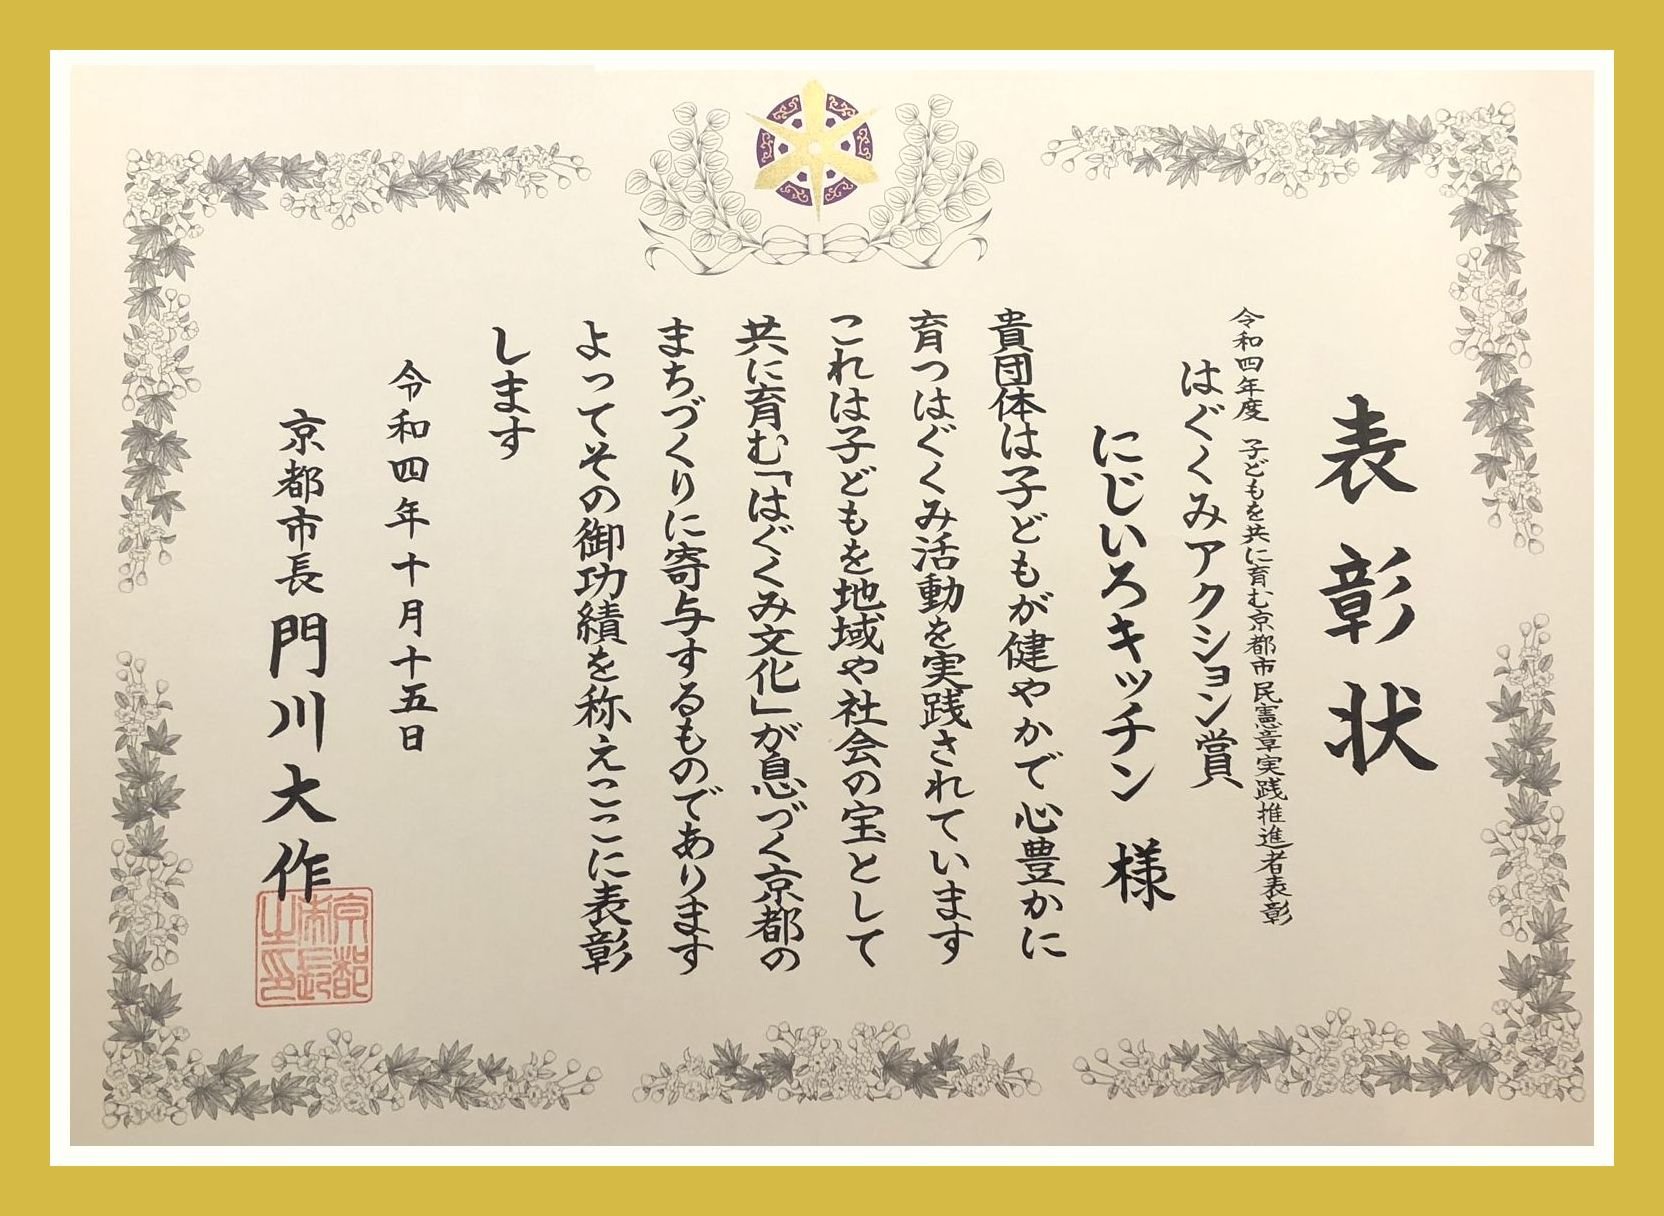 表彰状
令和四年度 子どもを共に育む京都市民憲章実践推進者表彰
はぐくみアクション賞
にじいろキッチン 様
貴団体は子どもが健やかで心豊かに
育つはぐくみ活動を実践されています
これは子どもを地域や社会の宝として
共に育む「はぐくみ文化」が息づく京都の
まちづくりに寄与するものであります
よってその御功績を称えここに表彰
します
令和四年十月十五日
京都市長 門川大作
京都
市長
之印